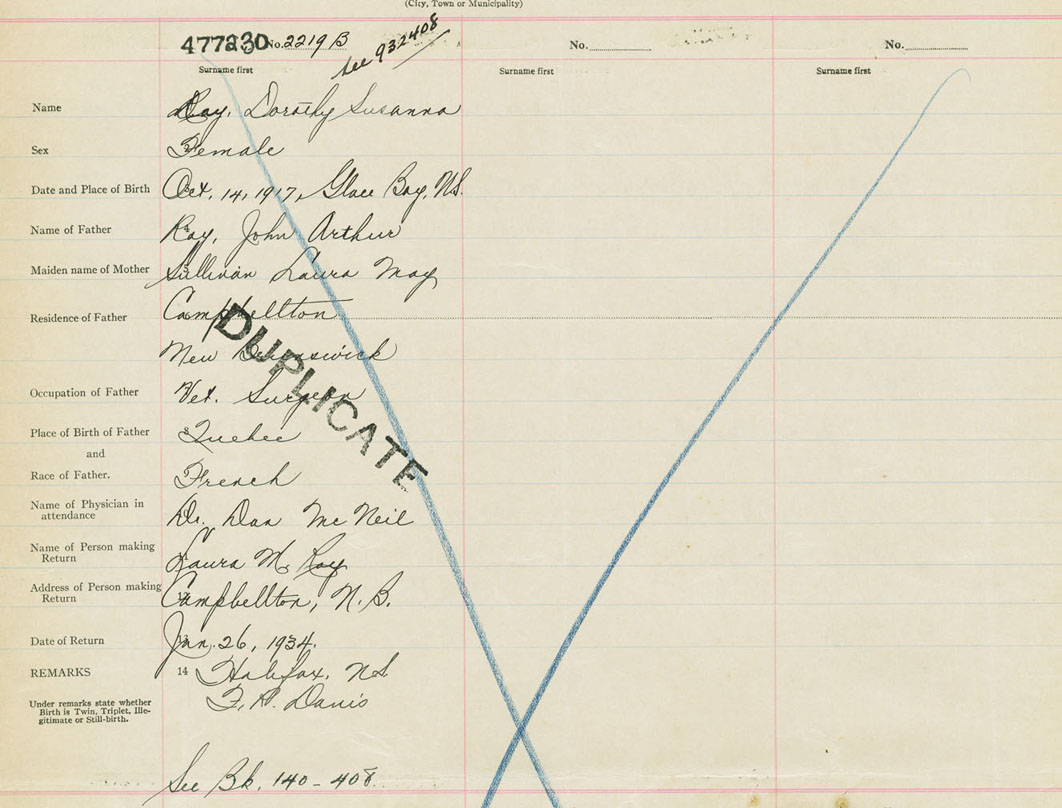 (City, Town or Municipality)
477230 No. 2219 B See 932408 No. No.
Surname first Surname first Surname first
Name Roy, Dorothy Susanna
Sex Female
Date and Place of Birth Oct. 14, 1917, Glace Bay, N.S.
Name of Father Roy, John Arthur
Maiden name of Mother Sullivan Laura May
Residence of Father Campbellton
New Brunswick
DUPLICATE
Occupation of Father Vet. Surgeon
Place of Birth of Father Quebec
and
Race of Father. French
Name of Physician in
attendance Dr. Dan McNeil
Name of Person making
Return Laura M. Roy
Address of Person making
Return Campbellton, N.B.
Date of Return Jan. 26, 1934.
REMARKS 14 Halifax, NS
Under remarks state whether
Birth is Twin, Triplet, Ille-
gitimate or Still-birth.
F. H. Davis
See Bk. 140 - 408